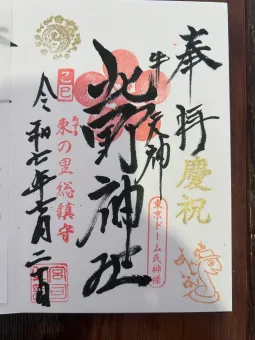 奉拝
慶祝
牛天神
北野神社
東京ドーム氏神様
乙巳
あずま
東の里総鎮守
令和七年七月二十日